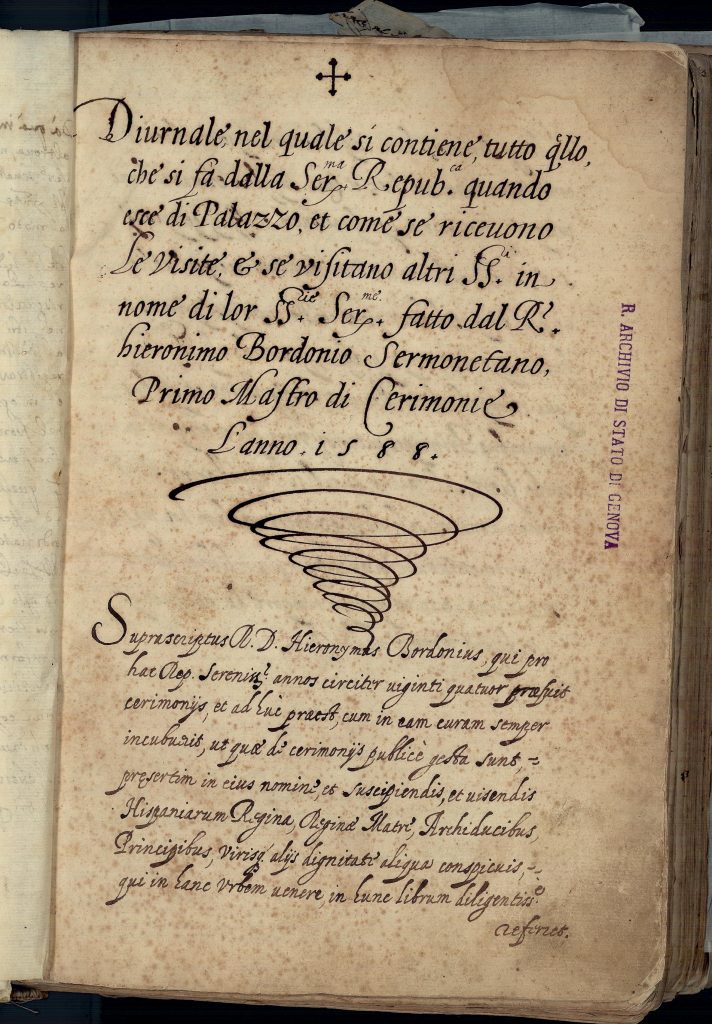 Diurnale, nel quale si contiene, tutto qllo,
che si fà dalla Ser.ma Repub.ca quando
esce di Palazzo, et come se riceuono
le visite, & se visitano altri SS.ri in
nome di lor SS.rie Ser.me fatto dal R.
hieronimo Bordonio Sermonetano,
Primo Mastro di Cerimonie
L'anno. 1588.
Suprascriptus R. D. Hieronymus Bordonius, qui pro
hac Rep. Sereniss. annos circiter uiginti quatuor præfuit
cerimonijs, et ad huc præest, cum in eam curam semper
incubuerit, ut quæ de cerimonijs publicè gesta sunt,
præsertim in eius nomine, et suscipiendis, et uisendis
Hispaniarum Regina, Reginæ Matre, Archiducibus,
Principibus, Virisq. alijs dignitate aliqua conspicuis,
qui in hanc Vrbem uenere, in hunc librum diligentiss.e
referret.
R. ARCHIVIO DI STATO DI GENOVA